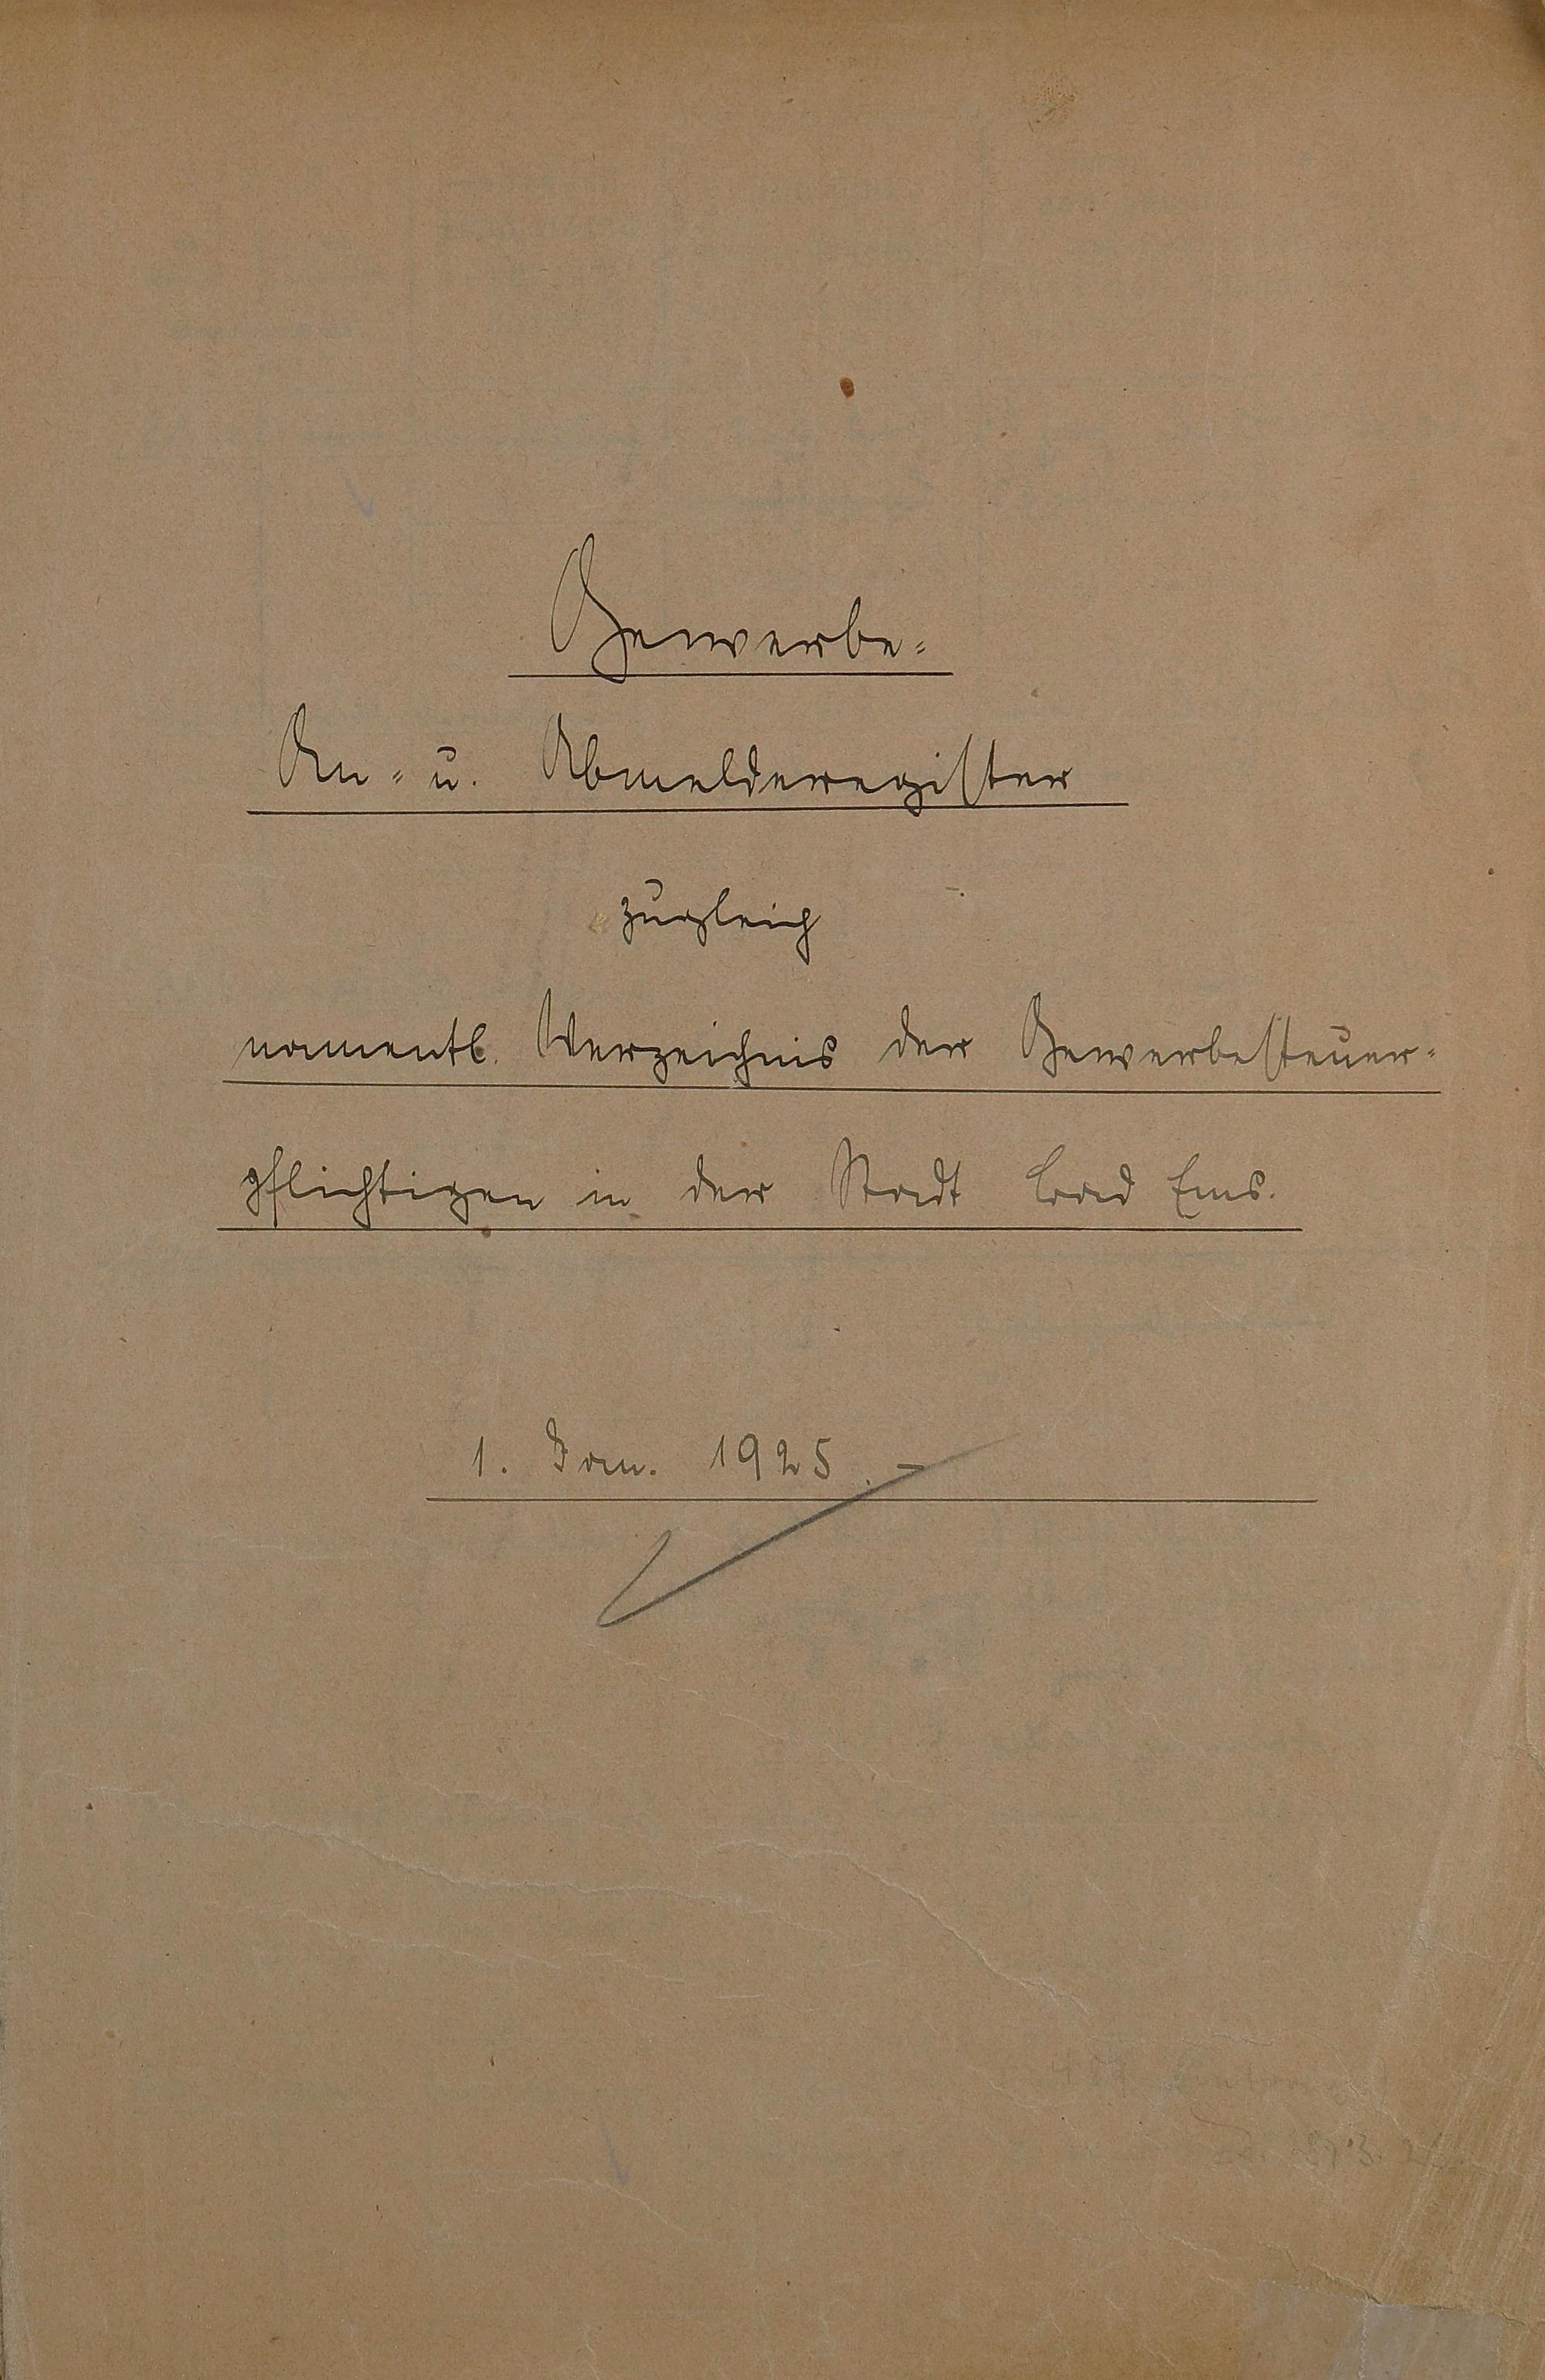 Gewerbe-
An- u. Abmelderegister
zugleich
namentl. Verzeichnis der Gewerbesteuer-
pflichtigen in der Stadt Bad Ems.
1. Jan. 1925.-